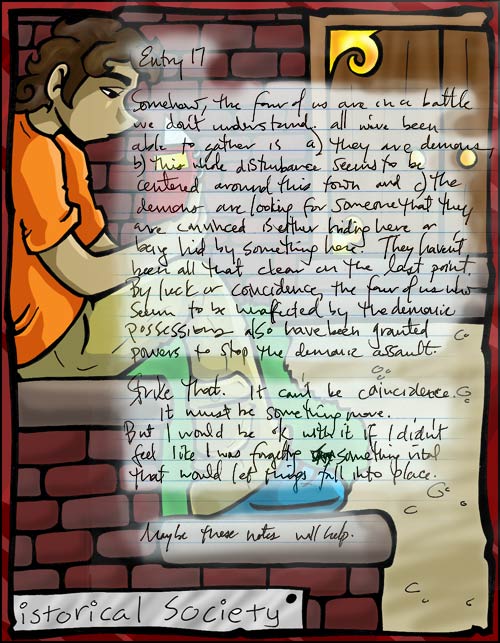 Entry 17
Somehow, the four of us are in a battle
we don't understand. all we've been
able to gather is a) they are demons,
b) this whole disturbance seems to be
centered around this town and c) the
demons are looking for someone that they
are convinced is either hiding here or
being hid by something here. They haven't
been all that clear on the last point.
By luck or coincidence, the four of us who
seem to be unaffected by the demonic
possessions also have been granted
powers to stop the demonic assault.
Strike that. It can't be coincidence.
It must be something more.
But I would be ok with it if I didn't
feel like I was forgetting something vital
that would let things fall into place.
Maybe these notes will help.
istorical Society